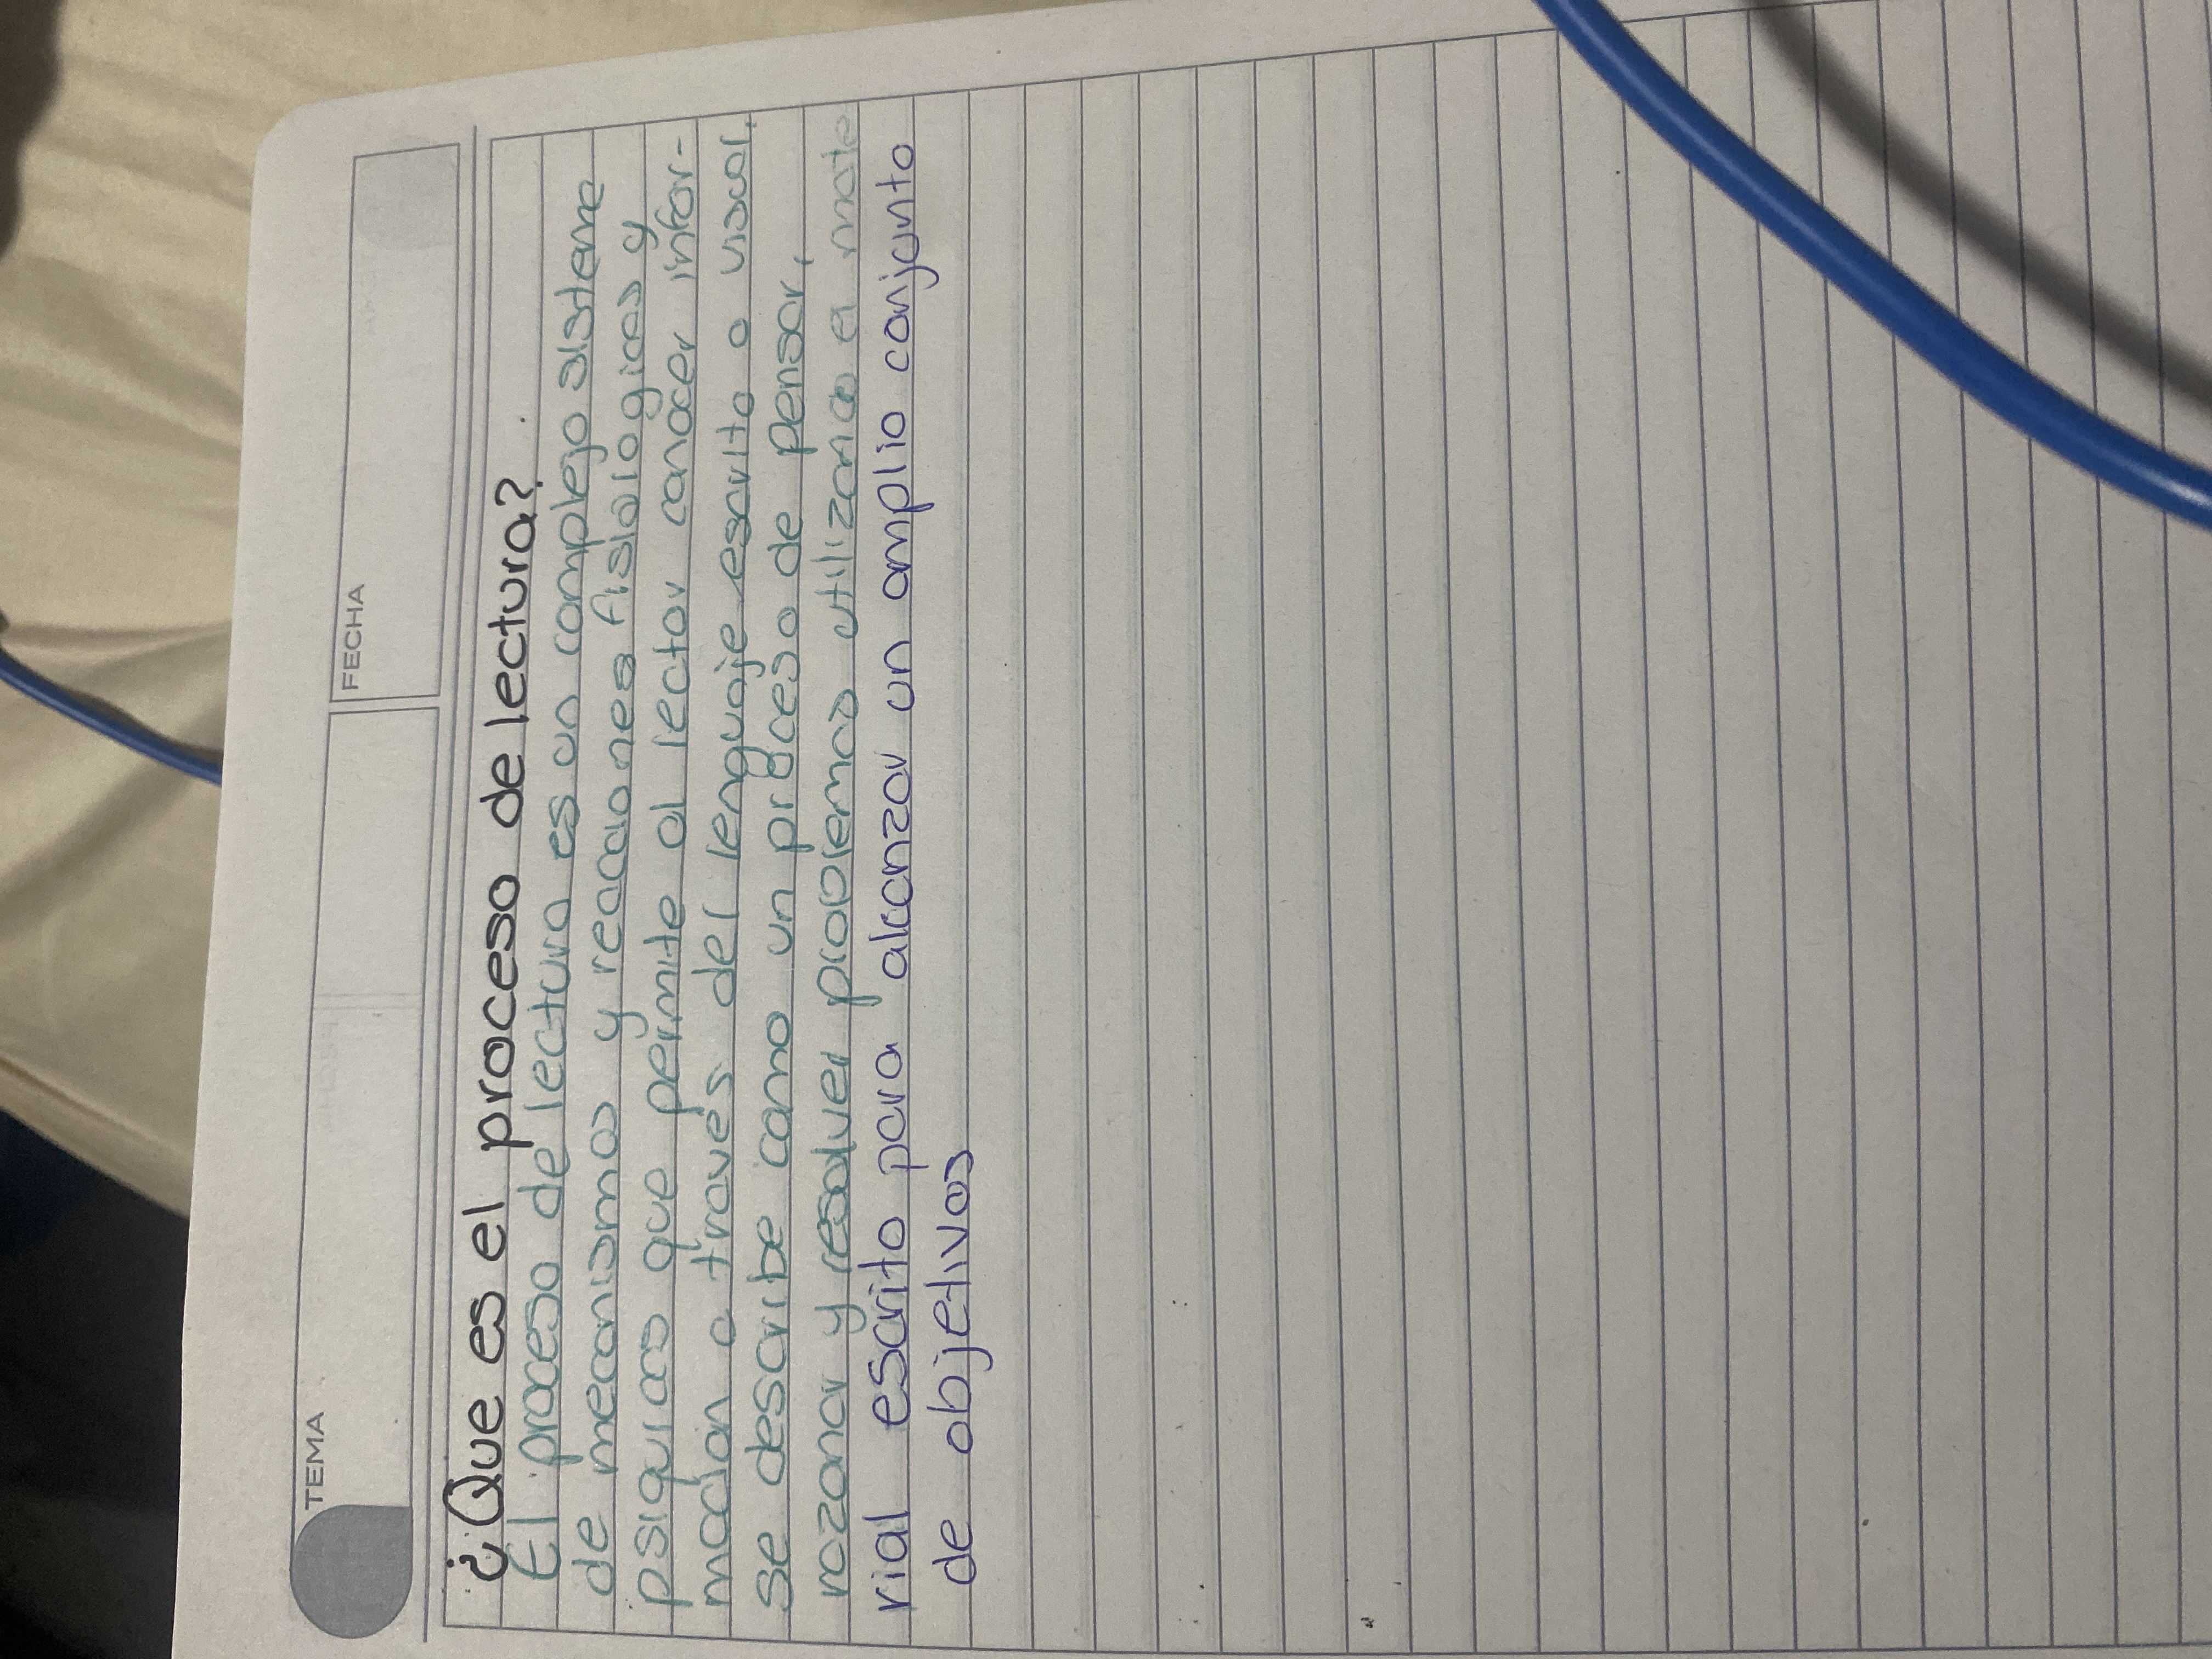 TEMA
FECHA
¿Que es el proceso de lectura?
El proceso de lectura es un complejo sistema
de mecanismos y reacciones fisiologicas y
psiquicas que permite al lector conocer infor-
macion a través del lenguaje escrito o visual,
se describe como un proceso de pensar,
razonar y resolver problemas utilizando el mate
rial escrito para alcanzar un amplio conjunto
de objetivos